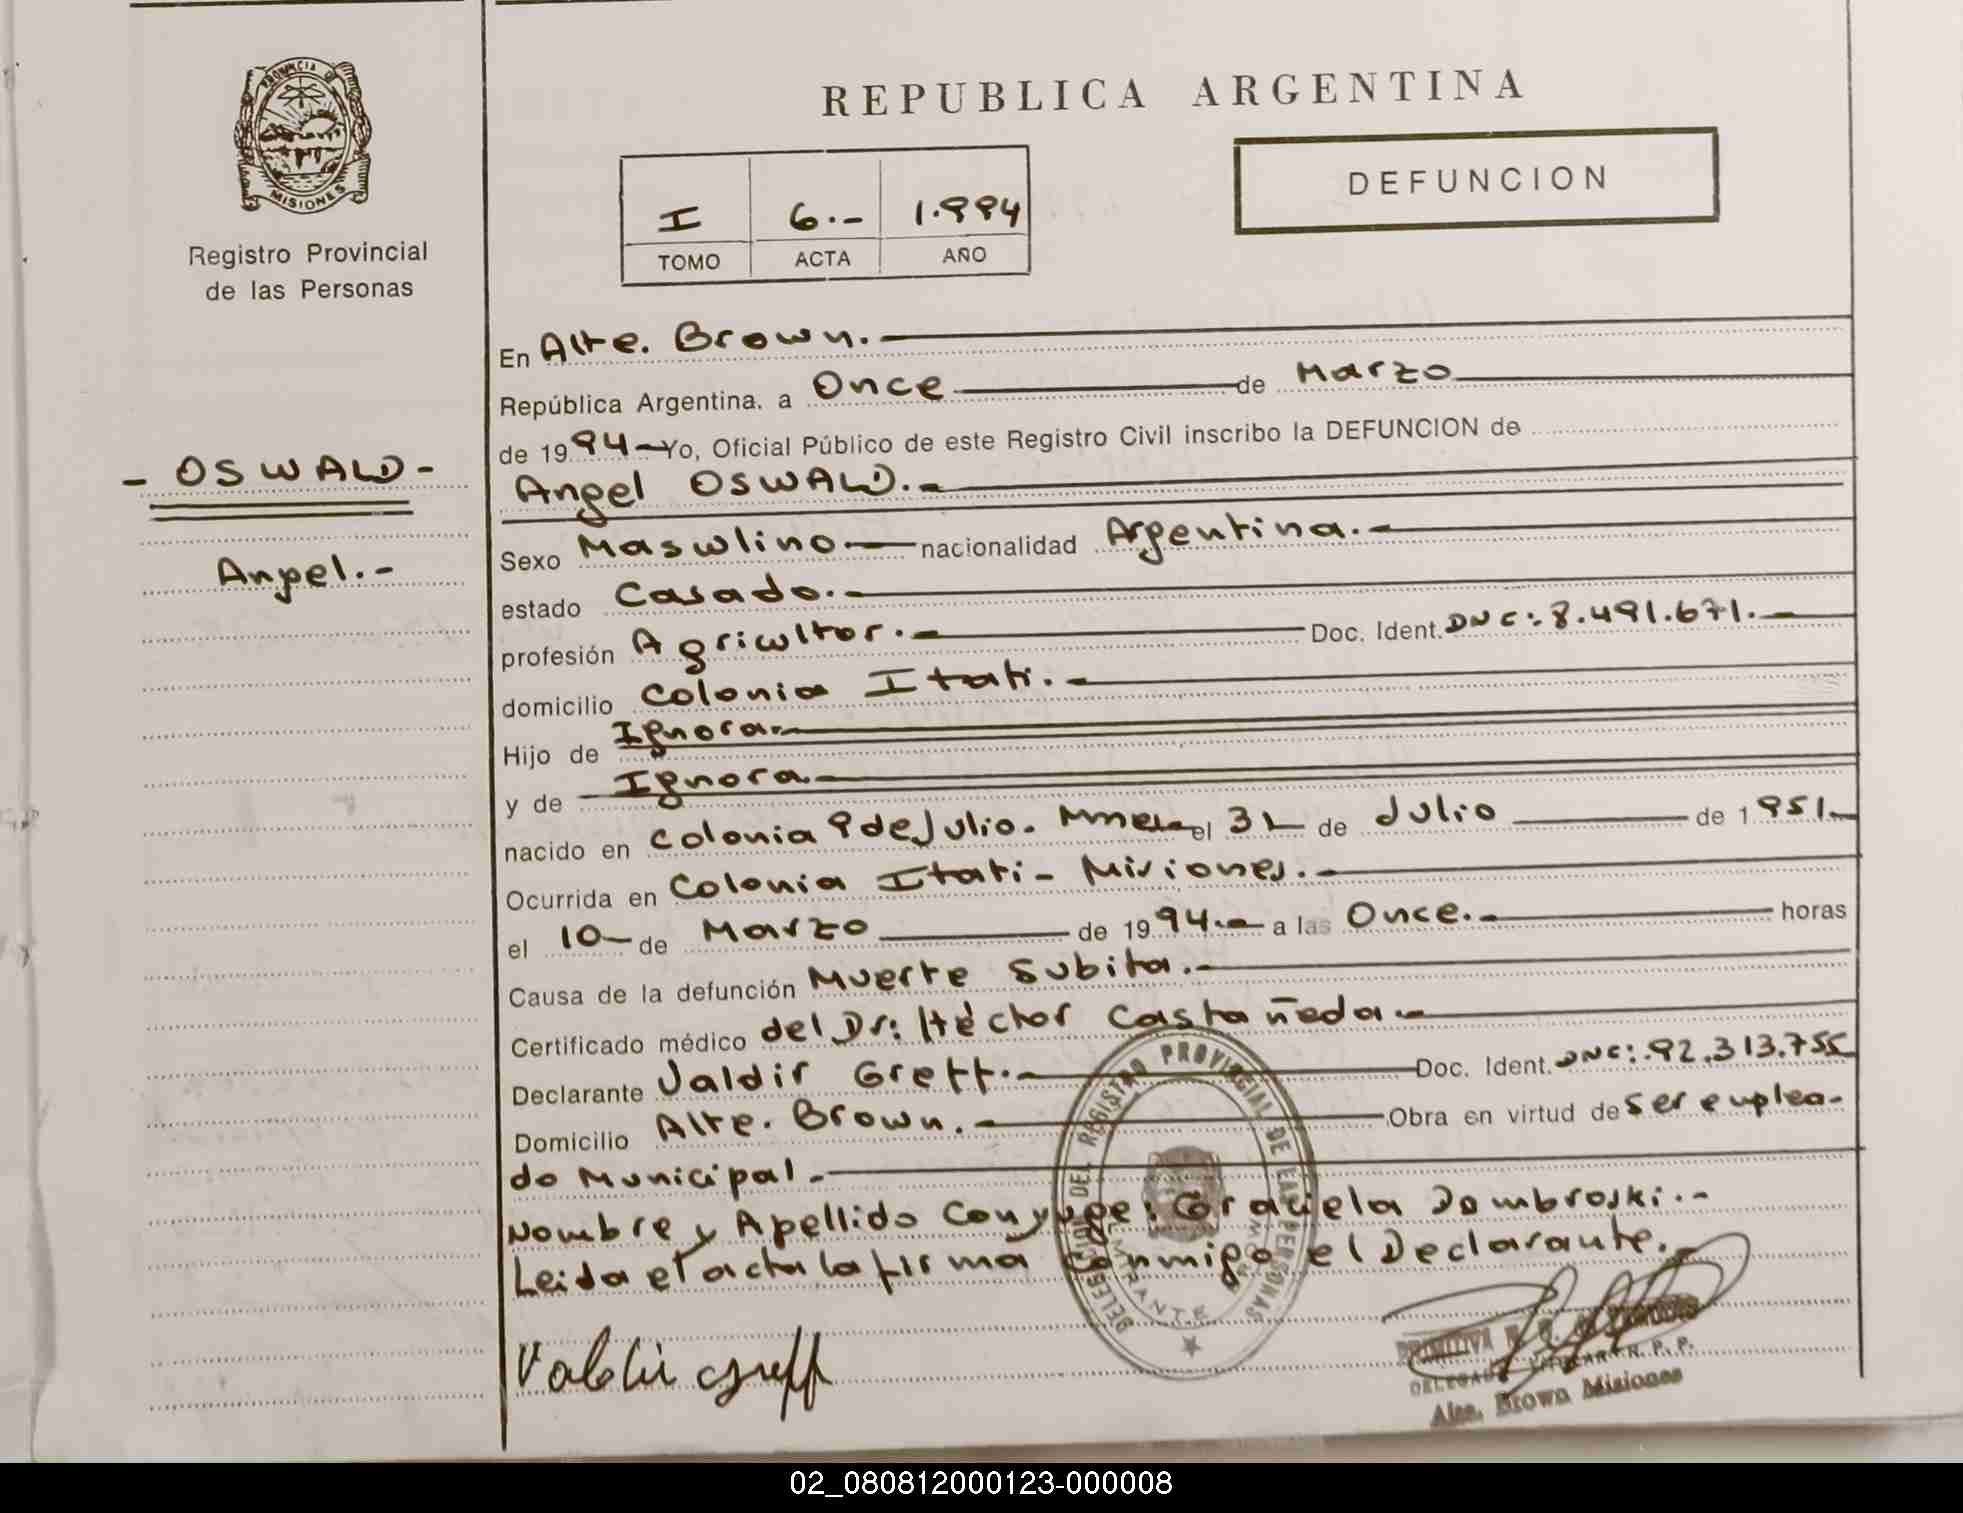 PROVINCIA DE
MISIONES
Registro Provincial
de las Personas
- OSWALD -
Angel.-
REPUBLICA ARGENTINA
I 6.- 1.994
TOMO ACTA AÑO
DEFUNCION
En Alte. Brown.
República Argentina, a Once de Marzo
de 1994 Yo, Oficial Público de este Registro Civil inscribo la DEFUNCION de
Angel OSWALD.-
Sexo Masculino nacionalidad Argentina.-
estado Casado.-
profesión Agricultor.- Doc. Ident. DNC: 8.491.671.-
domicilio Colonia Itati.-
Hijo de Ignora
y de Ignora.
nacido en Colonia 9 de Julio. el 31 de Julio de 1951.
Ocurrida en Colonia Itati - Misiones.-
el 10 de Marzo de 1994.- a las Once.- horas
Causa de la defunción Muerte Subita.-
Certificado médico del Dr: Héctor Castañeda
Declarante Valdir Greff.- Doc. Ident. DNC: 92.313.755
Domicilio Alte. Brown.- Obra en virtud de ser emplea-
do Municipal.-
Nombre y Apellido Conyuge: Graciela Dombroski.-
Leida el acta la firma conmigo el Declarante.-
DELEGACION DEL REGISTRO PROVINCIAL DE LAS PERSONAS
ALMIRANTE BROWN
Valdir Greff
PRIMITIVA
DELEGADA TITULAR R. P. P.
Alte. Brown Misiones
02_080812000123-000008